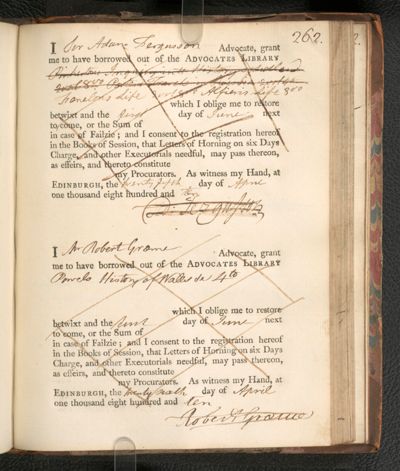 262.
I Sir Adam Fergusson Advocate, grant
me to have borrowed out of the ADVOCATES LIBRARY
Life Alfieris Life 8vo
which I oblige me to restore
betwixt and the first day of June next
to come, or the Sum of
in case of Failzie; and I consent to the registration hereof
in the Books of Session, that Letters of Horning on six Days
Charge, and other Executorials needful, may pass thereon,
as effeirs, and thereto constitute
my Procurators. As witness my Hand, at
EDINBURGH, the twenty fifth day of April
one thousand eight hundred and ten
I Mr Robert Graeme Advocate, grant
me to have borrowed out of the ADVOCATES LIBRARY
Powels History of Walles 4to
which I oblige me to restore
betwixt and the first day of June next
to come, or the Sum of
in case of Failzie; and I consent to the registration hereof
in the Books of Session, that Letters of Horning on six Days
Charge, and other Executorials needful, may pass thereon,
as effeirs, and thereto constitute
my Procurators. As witness my Hand, at
EDINBURGH, the twenty sixth day of April
one thousand eight hundred and ten
Robert Graeme